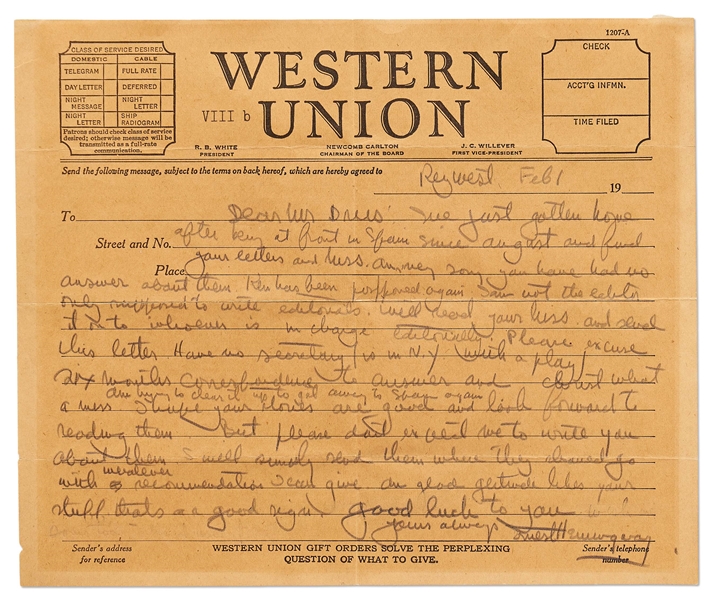 1207-A
CLASS OF SERVICE DESIRED
DOMESTIC CABLE
TELEGRAM FULL RATE
DAY LETTER DEFERRED
NIGHT MESSAGE NIGHT LETTER
NIGHT LETTER SHIP RADIOGRAM
Patrons should check class of service
desired; otherwise message will be
transmitted as a full-rate
communication.
WESTERN
VIII b UNION
R. B. WHITE PRESIDENT
NEWCOMB CARLTON CHAIRMAN OF THE BOARD
J. C. WILLEVER FIRST VICE-PRESIDENT
CHECK
ACCT'G INFMN.
TIME FILED
Send the following message, subject to the terms on back hereof, which are hereby agreed to
Key West Feb 1 19
To Dear Mr I've just gotten home
Street and No. after being at front in Spain since august and find
Place your letters and Mss. sorry you have had no
answer about them. Ken has been postponed again I am not the editor
only supposed to write editorials. Will read your Mss. and send
it on to whoever is in charge Editorially. Please excuse
this letter. Have no secretary (is in N.Y. with a play)
six months correspondence to answer and christ what
am trying to clear it up to get away to Spain again
a mess I hope your stories are good and look forward to
reading them But please don't expect me to write you
about them I will simply send them where they should go
with whatever recommendation I can give am glad gertrude likes your
stuff thats a good sign. Good luck to you
yours always Ernest Hemingway
Sender's address for reference
WESTERN UNION GIFT ORDERS SOLVE THE PERPLEXING
QUESTION OF WHAT TO GIVE.
Sender's telephone number